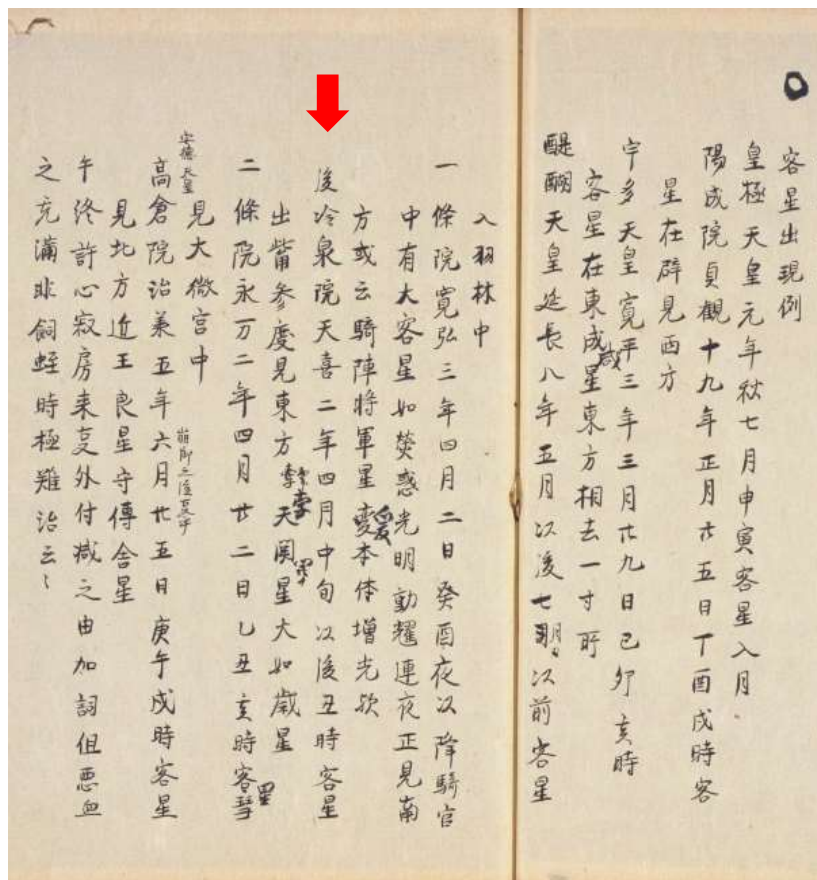 客星出現例
皇極天皇元年秋七月甲寅客星入月
陽成院貞觀十九年正月廿五日丁酉戌時客
星在辟見西方
宇多天皇寛平三年三月廿九日己卯亥時
客星在東咸星東方相去一寸所
醍醐天皇延長八年五月以後七月以前客星
入羽林中
一條院寛弘三年四月二日癸酉夜以降騎官
中有大客星如熒惑光明動耀連夜正見南
方或云騎陣將軍星變本体增光歟
後冷泉院天喜二年四月中旬以後丑時客星
出觜參度見東方孛天関星大如歳星
二條院永万二年四月廿二日乙丑亥時客星彗
見大微宮中
安德天皇
高倉院治兼五年六月廿五日庚午戌時客星
見北方近王良星守傳舍星
午終許心寂房来
外付減之由加詞但悪血
之充滿非飼蛭時極難治云〻